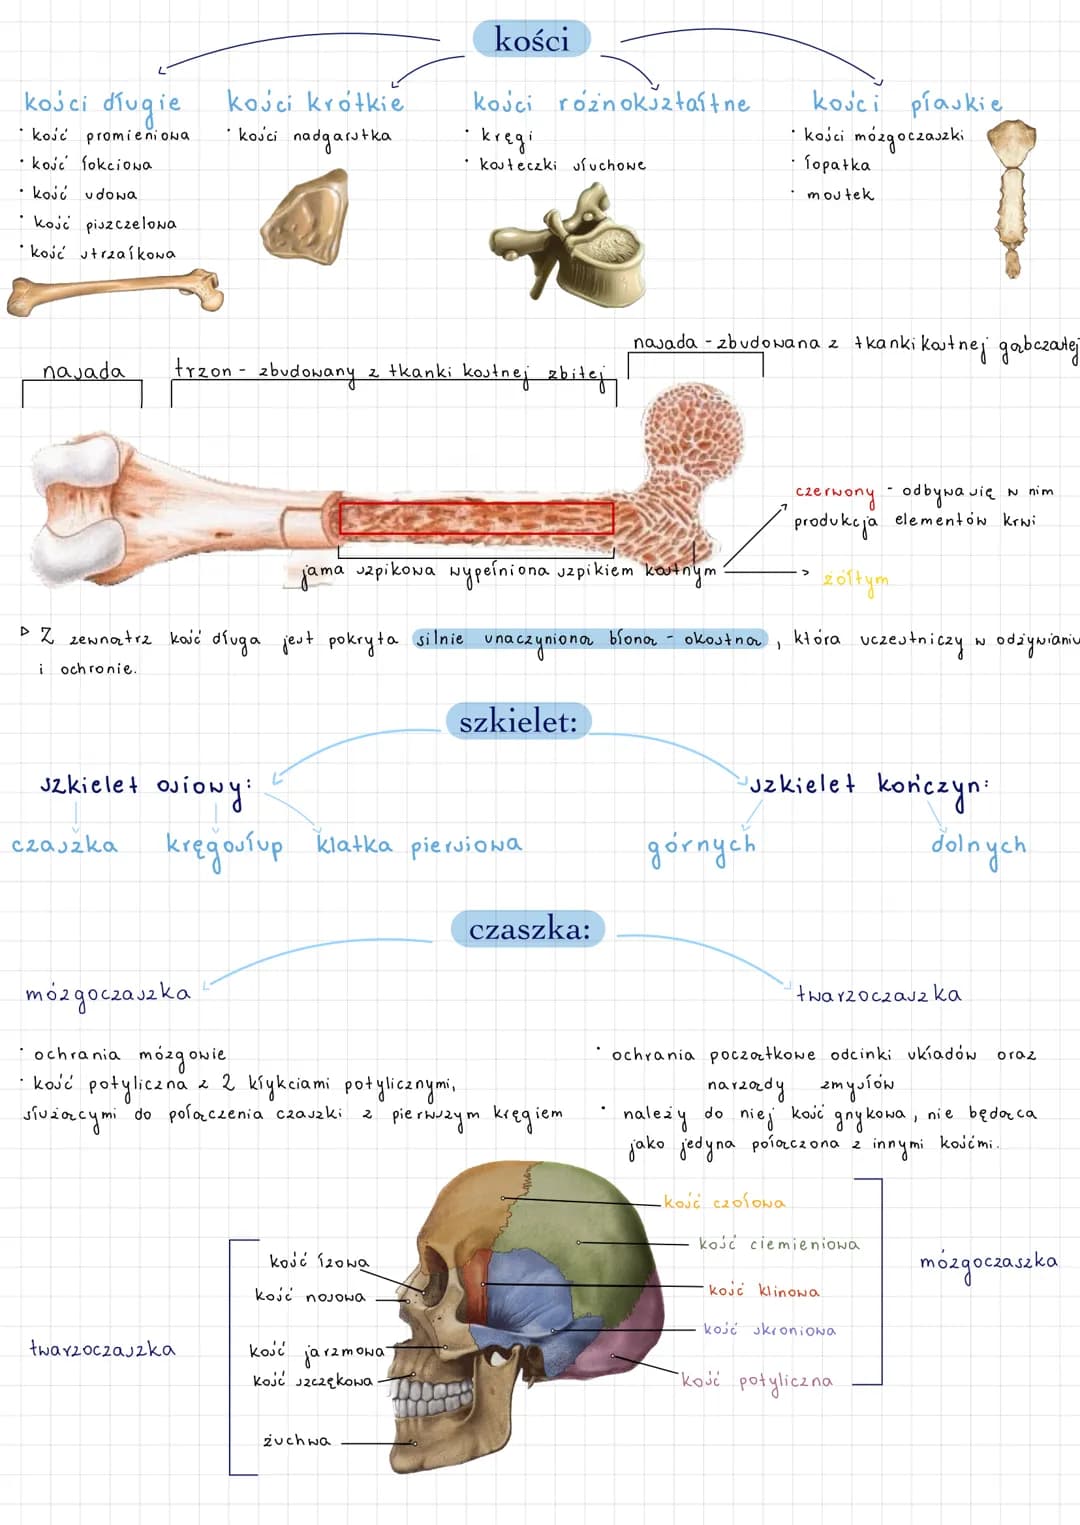 kości
kości długie
· kość promieniowa
· kość łokciowa
· kość udowa
· kość piszczelowa
· kość strzałkowa
kości krótkie
· kości nadgarstka
kości różnokształtne
· kręgi
· kosteczki słuchowe
kości płaskie
· kości mózgoczaszki
· łopatka
· mostek
nasada
trzon - zbudowany z tkanki kostnej zbitej
nasada - zbudowana z tkanki kostnej gąbczastej
czerwony - odbywa się w nim
produkcja elementów krwi
jama szpikowa wypełniona szpikiem kostnym
żółtym
▷ Z zewnątrz kość długa jest pokryta silnie unaczynioną błoną - okostną, która uczestniczy w odżywianiu
i ochronie.
szkielet:
szkielet osiowy:
szkielet kończyn:
czaszka kręgosłup klatka piersiowa
górnych dolnych
czaszka:
mózgoczaszka
· ochrania mózgowie
· kość potyliczna z 2 kłykciami potylicznymi,
służącymi do połączenia czaszki z pierwszym kręgiem
twarzoczaszka
· ochrania początkowe odcinki układów oraz
narządy zmysłów
· należy do niej kość gnykowa, nie będąca
jako jedyna połączona z innymi kośćmi.
kość czołowa
kość ciemieniowa
kość klinowa
kość skroniowa
kość potyliczna
mózgoczaszka
kość łzowa
kość nosowa
kość jarzmowa
kość szczękowa
żuchwa
twarzoczaszka